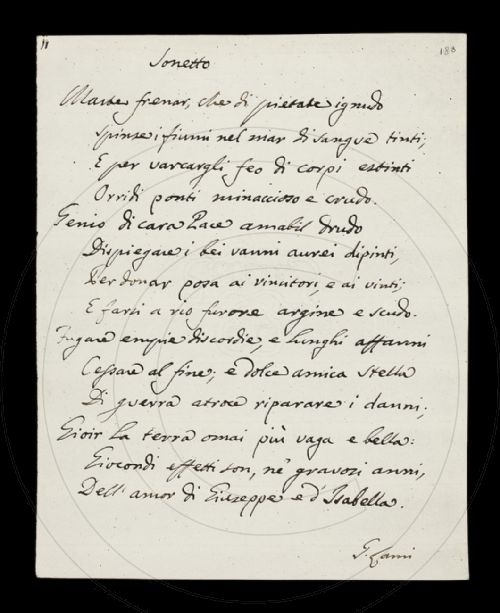 11
188
Sonetto
Marte frenar, che di pietate ignudo
Spinse i fiumi nel mar di sangue tinti;
E per varcargli feo di corpi estinti
Orridi ponti minaccioso e crudo.
Genio di cara Pace amabil drudo
Dispiegare i bei vanni aurei dipinti,
Per donar posa ai vincitori, e ai vinti;
E farsi a rio furore argine e scudo.
Fugare empie discordie, e lunghi affanni
Cessare al fine; e dolce amica Stella
Di guerra atroce riparare i danni;
Gioir la terra omai più vaga e bella:
Giocondi effetti son, ne' gravosi anni,
Dell' amor di Giuseppe e d'Isabella.
G. Lami